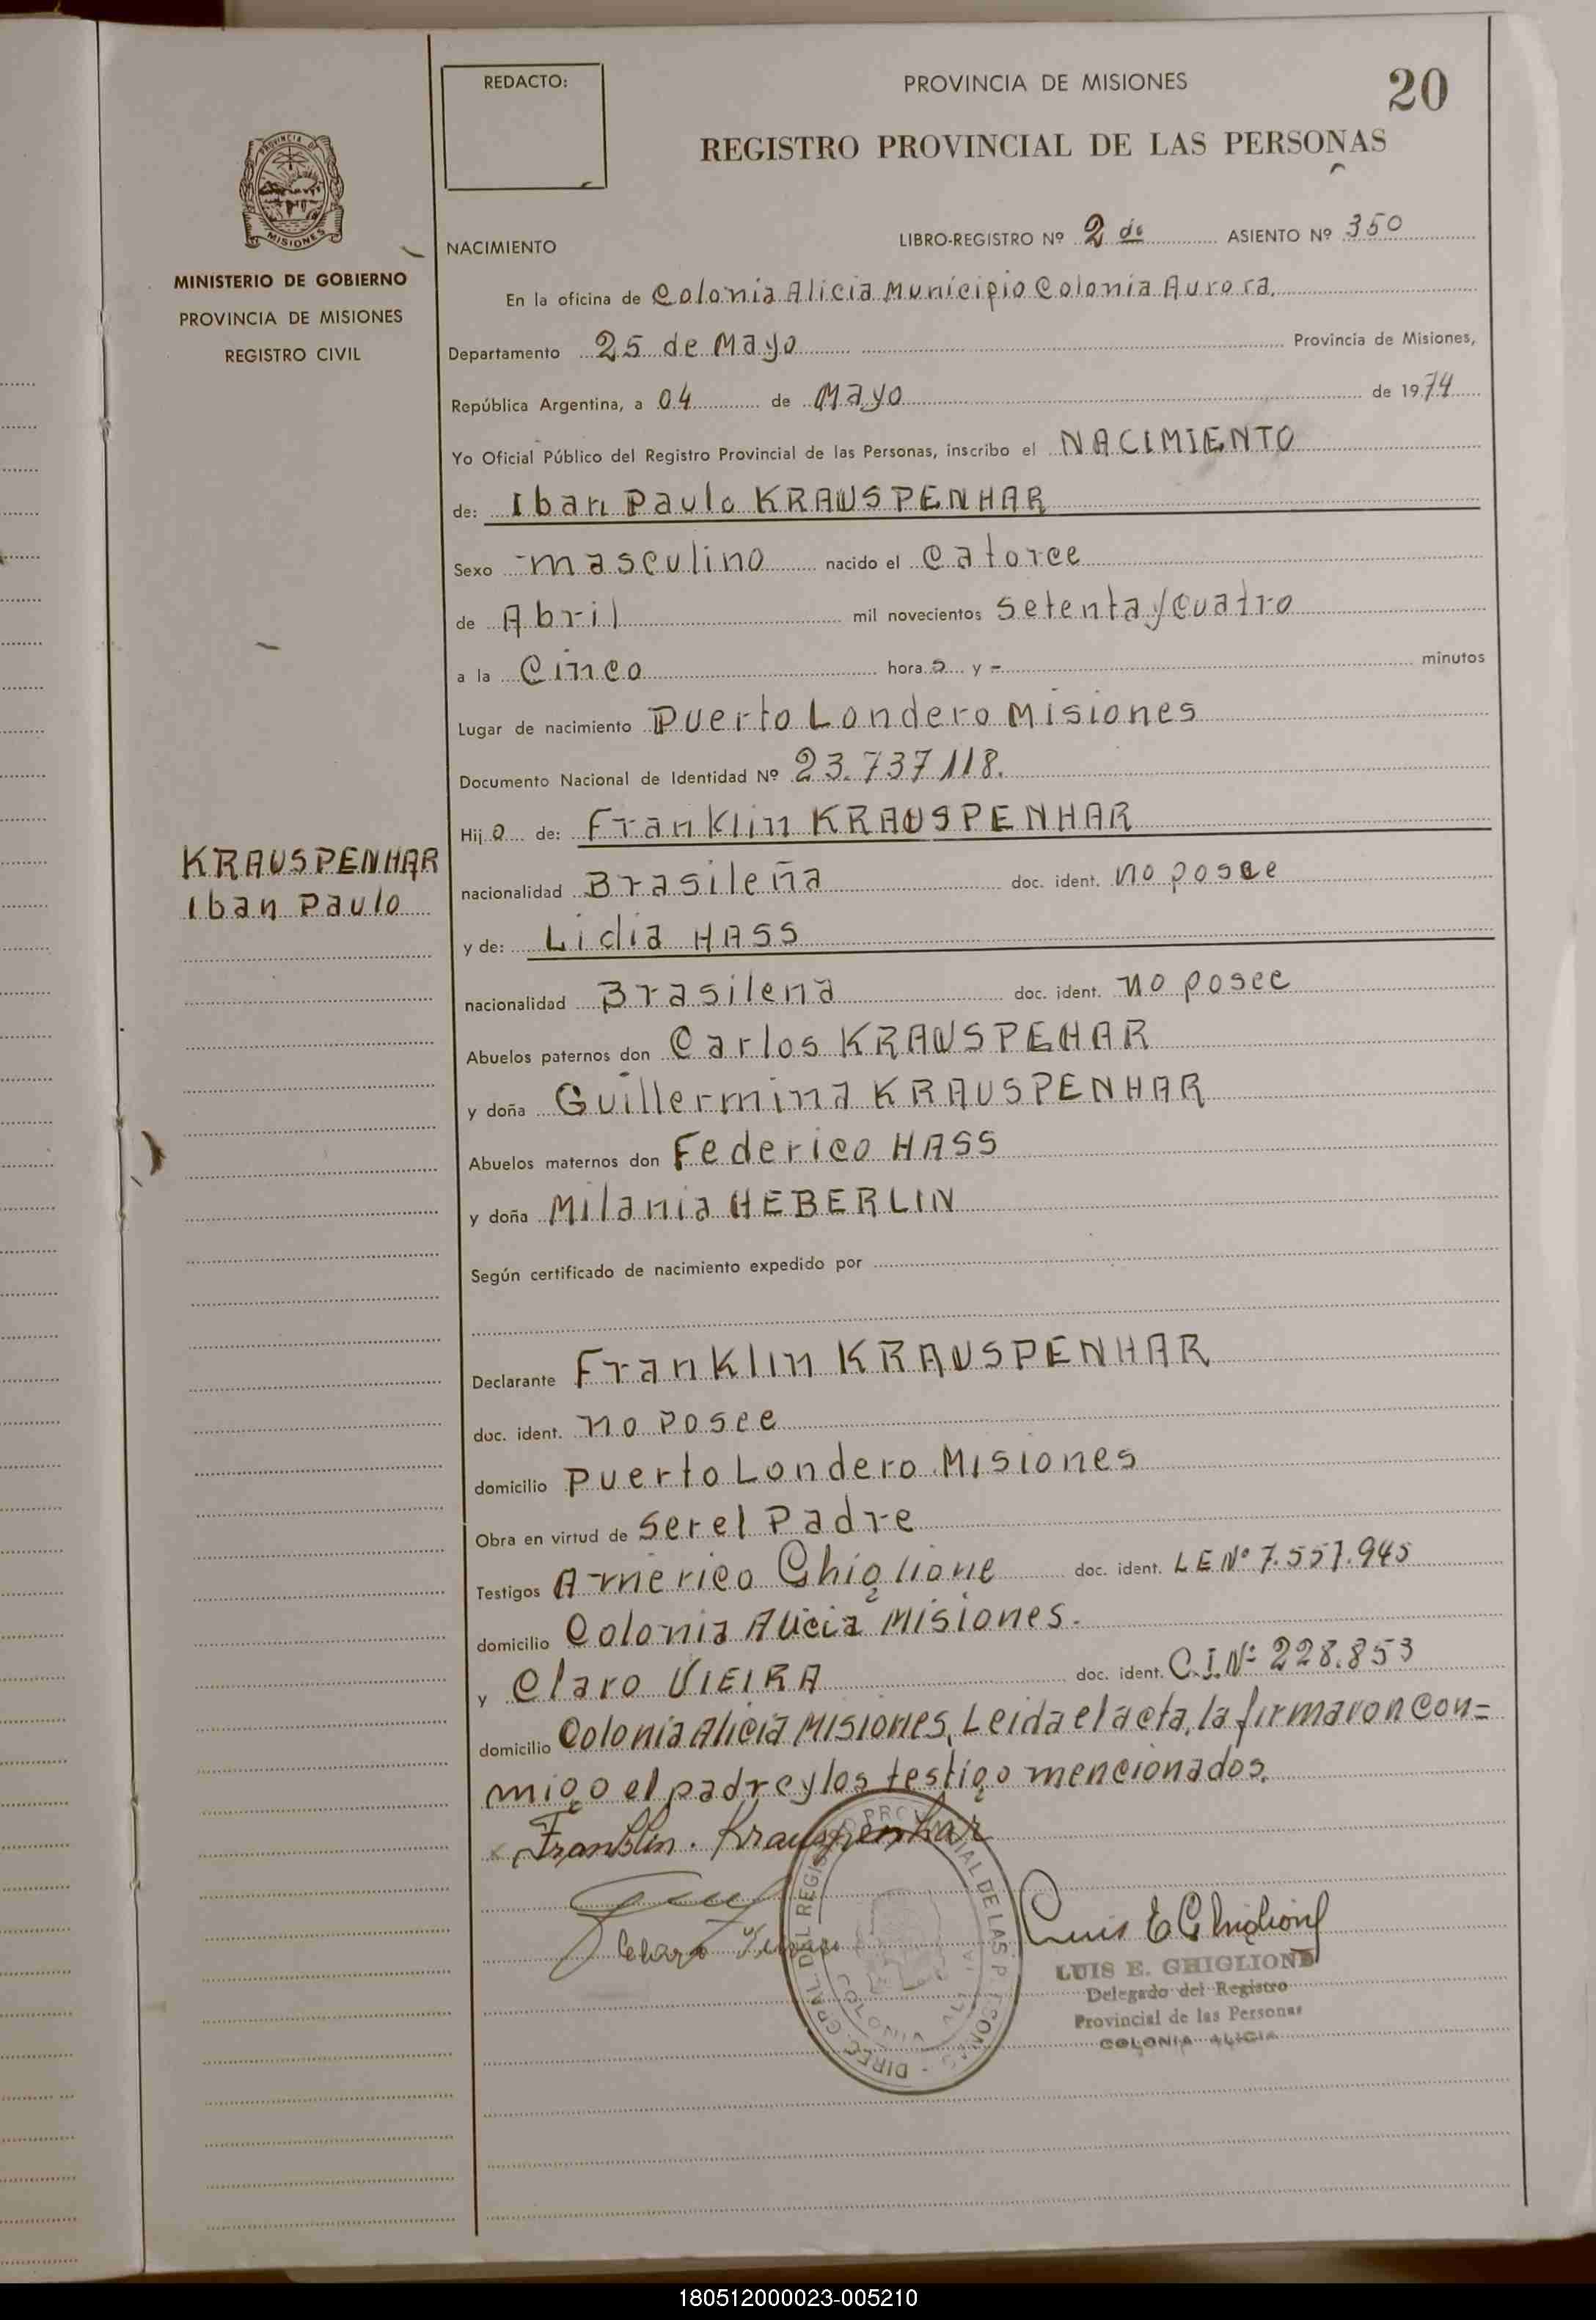 REDACTO:
PROVINCIA DE MISIONES
20
REGISTRO PROVINCIAL DE LAS PERSONAS
PROVINCIA DE
MISIONES
MINISTERIO DE GOBIERNO
PROVINCIA DE MISIONES
REGISTRO CIVIL
NACIMIENTO
LIBRO-REGISTRO Nº 2 do ASIENTO Nº 350
En la oficina de Colonia Alicia Municipio Colonia Aurora.
Departamento 25 de Mayo Provincia de Misiones,
República Argentina, a 04 de Mayo de 1974
Yo Oficial Público del Registro Provincial de las Personas, inscribo el NACIMIENTO
de: Iban Paulo KRAUSPENHAR
Sexo masculino nacido el Catorce
de Abril mil novecientos setenta y Cuatro
a la Cinco hora s y - minutos
Lugar de nacimiento Puerto Londero Misiones
Documento Nacional de Identidad Nº 23.737118.
Hij o de: Franklin KRAUSPENHAR
KRAUSPENHAR
Iban Paulo
nacionalidad Brasileña doc. ident. no posee
y de: Lidia HASS
nacionalidad Brasilena doc. ident. no posee
Abuelos paternos don Carlos KRAUSPEHAR
y doña Guillermina KRAUSPENHAR
Abuelos maternos don Federico HASS
y doña Milania HEBERLIN
Según certificado de nacimiento expedido por
Declarante Franklin KRAUSPENHAR
doc. ident. no posee
domicilio Puerto Londero Misiones
Obra en virtud de ser el Padre
Testigos Américo Ghiglione doc. ident. LE Nº 7.557.945
domicilio Colonia Alicia Misiones.
y Claro VIEIRA doc. ident. C.I.Nº 228.853
domicilio Colonia Alicia Misiones, Leida el acta, la firmaron con=
migo el padre y los testigo mencionados.
Franklin. Krauspenhar
Luis E Ghiglione
LUIS E. GHIGLIONE
Delegado del Registro
Provincial de las Personas
COLONIA ALICIA
DIREC. GRAL. DEL REGISTRO PROVINCIAL DE LAS PERSONAS
180512000023-005210